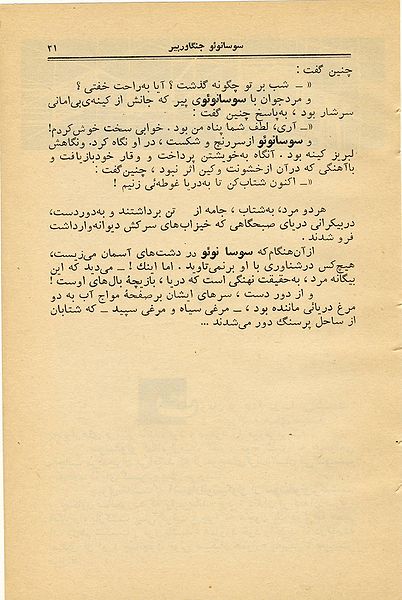 سوسانوئو جنگاور پیر ۲۱
چنین گفت :
« ــ شب بر تو چگونه گذشت ؟ آیا به‌راحت خفتی ؟
و مردجوان با سوسانوئوی پیر که جانش از کینه‌ی‌بی‌امانی
سرشار بود ، به‌پاسخ چنین گفت :
«ــ آری، لطف شما پناه من بود . خوابی سخت خوش‌کردم!
و سوسانوئو ازسررنج و شکست ، در او نگاه کرد. ونگاهش
لبریز کینه بود . آنگاه به‌خویشتن پرداخت و وقار خودبازیافت و
باآهنگی که درآن ازخشونت وکین اثر نبود ، چنین‌گفت :
«ــ اکنون شتاب‌کن تا به‌دریا غوطه‌ئی زنیم !
هردو مرد، به‌شتاب ، جامه از تن برداشتند و به‌دوردست،
دربیکرانی دریای صبحگاهی که خیزاب‌های سرکش دیوانه‌وارداشت
فرو شدند .
ازآن‌هنگام‌که سوسا نوئو در دشت‌های آسمان می‌زیست،
هیچ‌کس درشناوری با او برنمی‌تاوید . اما اینك ! ــ می‌دید که این
بیگانه مرد ، به‌حقیقت نهنگی است که دریا ، بازیچهٔ بال‌های اوست !
و از دور دست ، سرهای ایشان برصفحهٔ مواج آب به دو
مرغ دریائی ماننده بود ، ــ مرغی سیاه و مرغی سپید ــ که شتابان
از ساحل پرسنگ دور می‌شدند ...